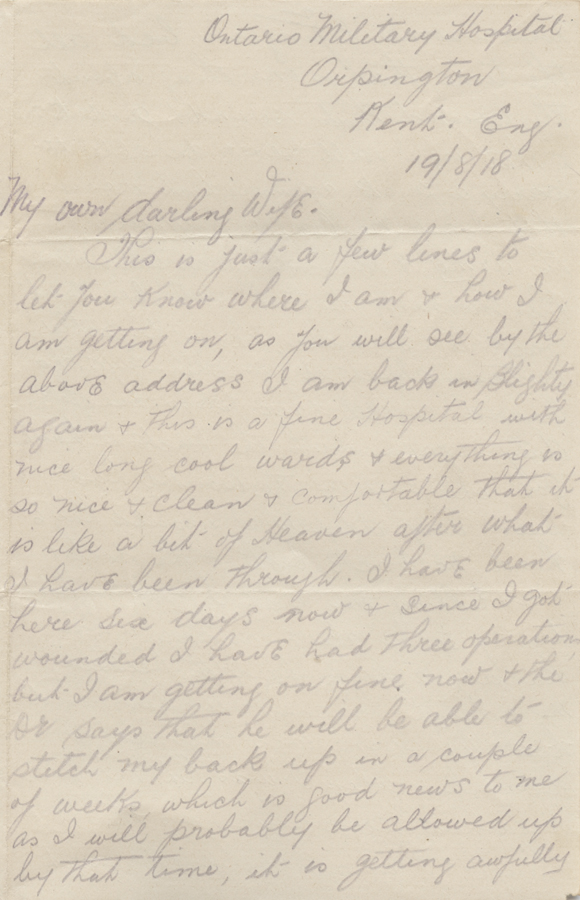 Ontario Military Hospital
Orpington
Kent. Eng.
19/8/18
My own darling Wife.
This is just a few lines to
let you know where I am & how I
am getting on, as you will see by the
above address I am back in Blighty
again & this is a fine Hospital with
nice long cool wards & everything is
so nice & clean & comfortable that it
is like a bit of Heaven after what
I have been through. I have been
here six days now & since I got
wounded I have had three operations
but I am getting on fine now & the
Dr says that he will be able to
stitch my back up in a couple
of weeks which is good news to me
as I will probably be allowed up
by that time, it is getting awfully